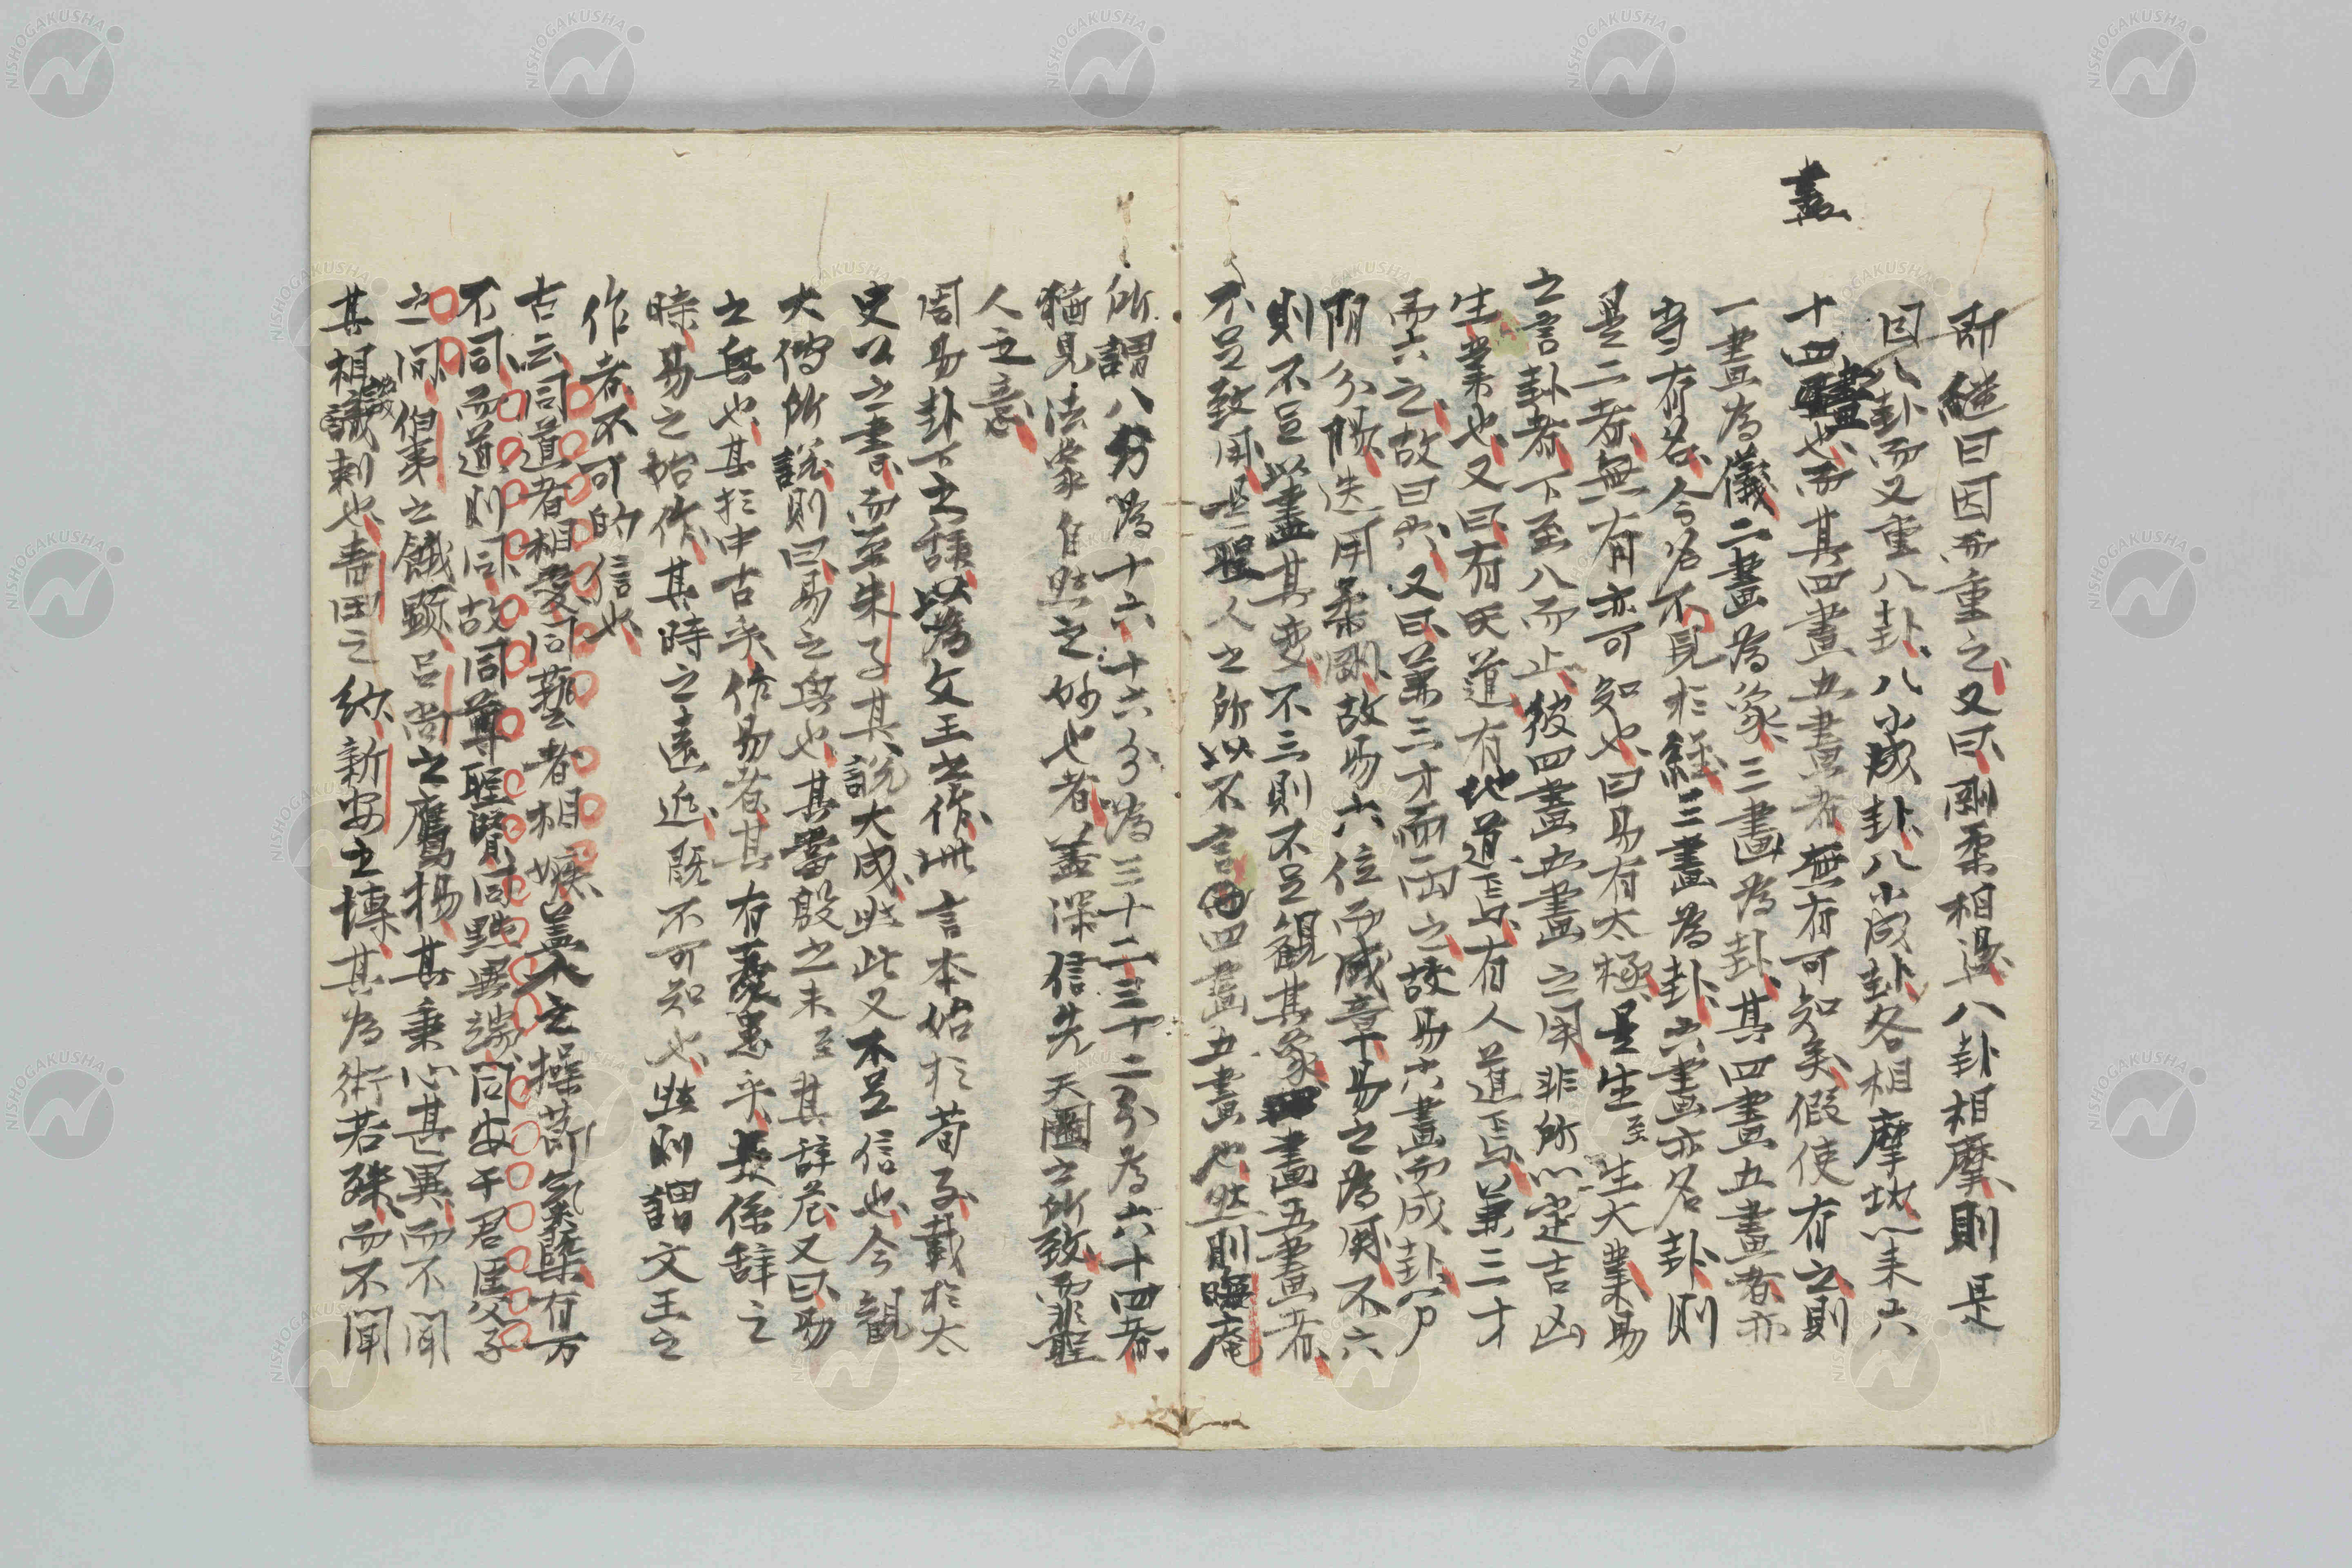 畫
所繇曰因而重之又曰剛柔相盪八卦相摩則是
因八卦而又重八卦八小成卦八小成卦各相摩蕩以來六
十四畫也而其四畫五畫者無有可知矣假使有之則
一畫為儀二畫為象三畫為卦其四畫五畫者亦
当有名今名不見於經三畫為卦六畫亦名卦則
是二者無有亦可知也曰易有太極是生至生大業易
之言卦者下至八而止彼四畫五畫之用非所以定吉凶
生業也又曰有天道焉有地道焉有人道焉兼三才
而六之故曰六又曰兼三才而兩之故易六畫而成卦分
陰分陽迭用柔剛故易六位而成章易之為用不六
則不足以盡其變不三則不足觀其象四畫五畫者
不足致用是聖人之所以不言四畫五畫也然則晦庵
所謂八分為十六十六分為三十二三十二分為六十四者
猶見法象自然之妙也者蓋深信先天圖之所致而非聖
人之意
周易卦下之辭以為文王之作此言本始於荀子載於太
史公之書而至朱子其說大成然此又不足信也今觀
大傳所說則曰易之興也其當殷之末至其辭危又曰易
之興也其於中古乎作易者其有憂患乎是係辭之
時易之始作其時之遠近既不可知也然則謂文王之
作者不可的信也
古云同道者相愛同藝者相嫉蓋人之操節氣槩有万
不同而道則同故同尊聖賢同黜異端同安于君臣父子
之同伯夷之餓顯呂尚之鷹揚其秉心甚異而不聞
其相譏刺也青田之約新安之博其為術若殊而不聞